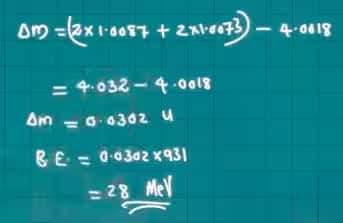 Δm = (2×1.0087 + 2×1.0073) - 4.0018
= 4.032 - 4.0018
Δm = 0.0302 u
B.E. = 0.0302 × 931
= 28 MeV